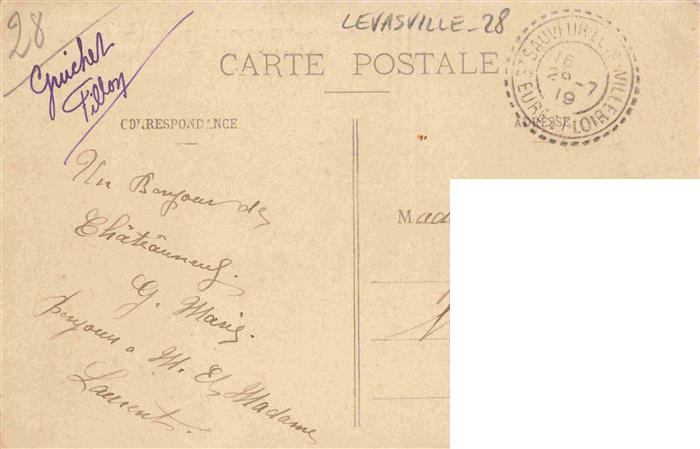 28
LEVASVILLE_28
Guichet
Fillon
CARTE POSTALE
ST SAUVEUR-LEVASVILLE
16
29-7
19
EURE-ET-LOIR
CORRESPONDANCE
ADRESSE
Un Bonjour de
Châteauneuf.
G. Marie.
bonjour a M. Et Madame
Laurent.
Mad